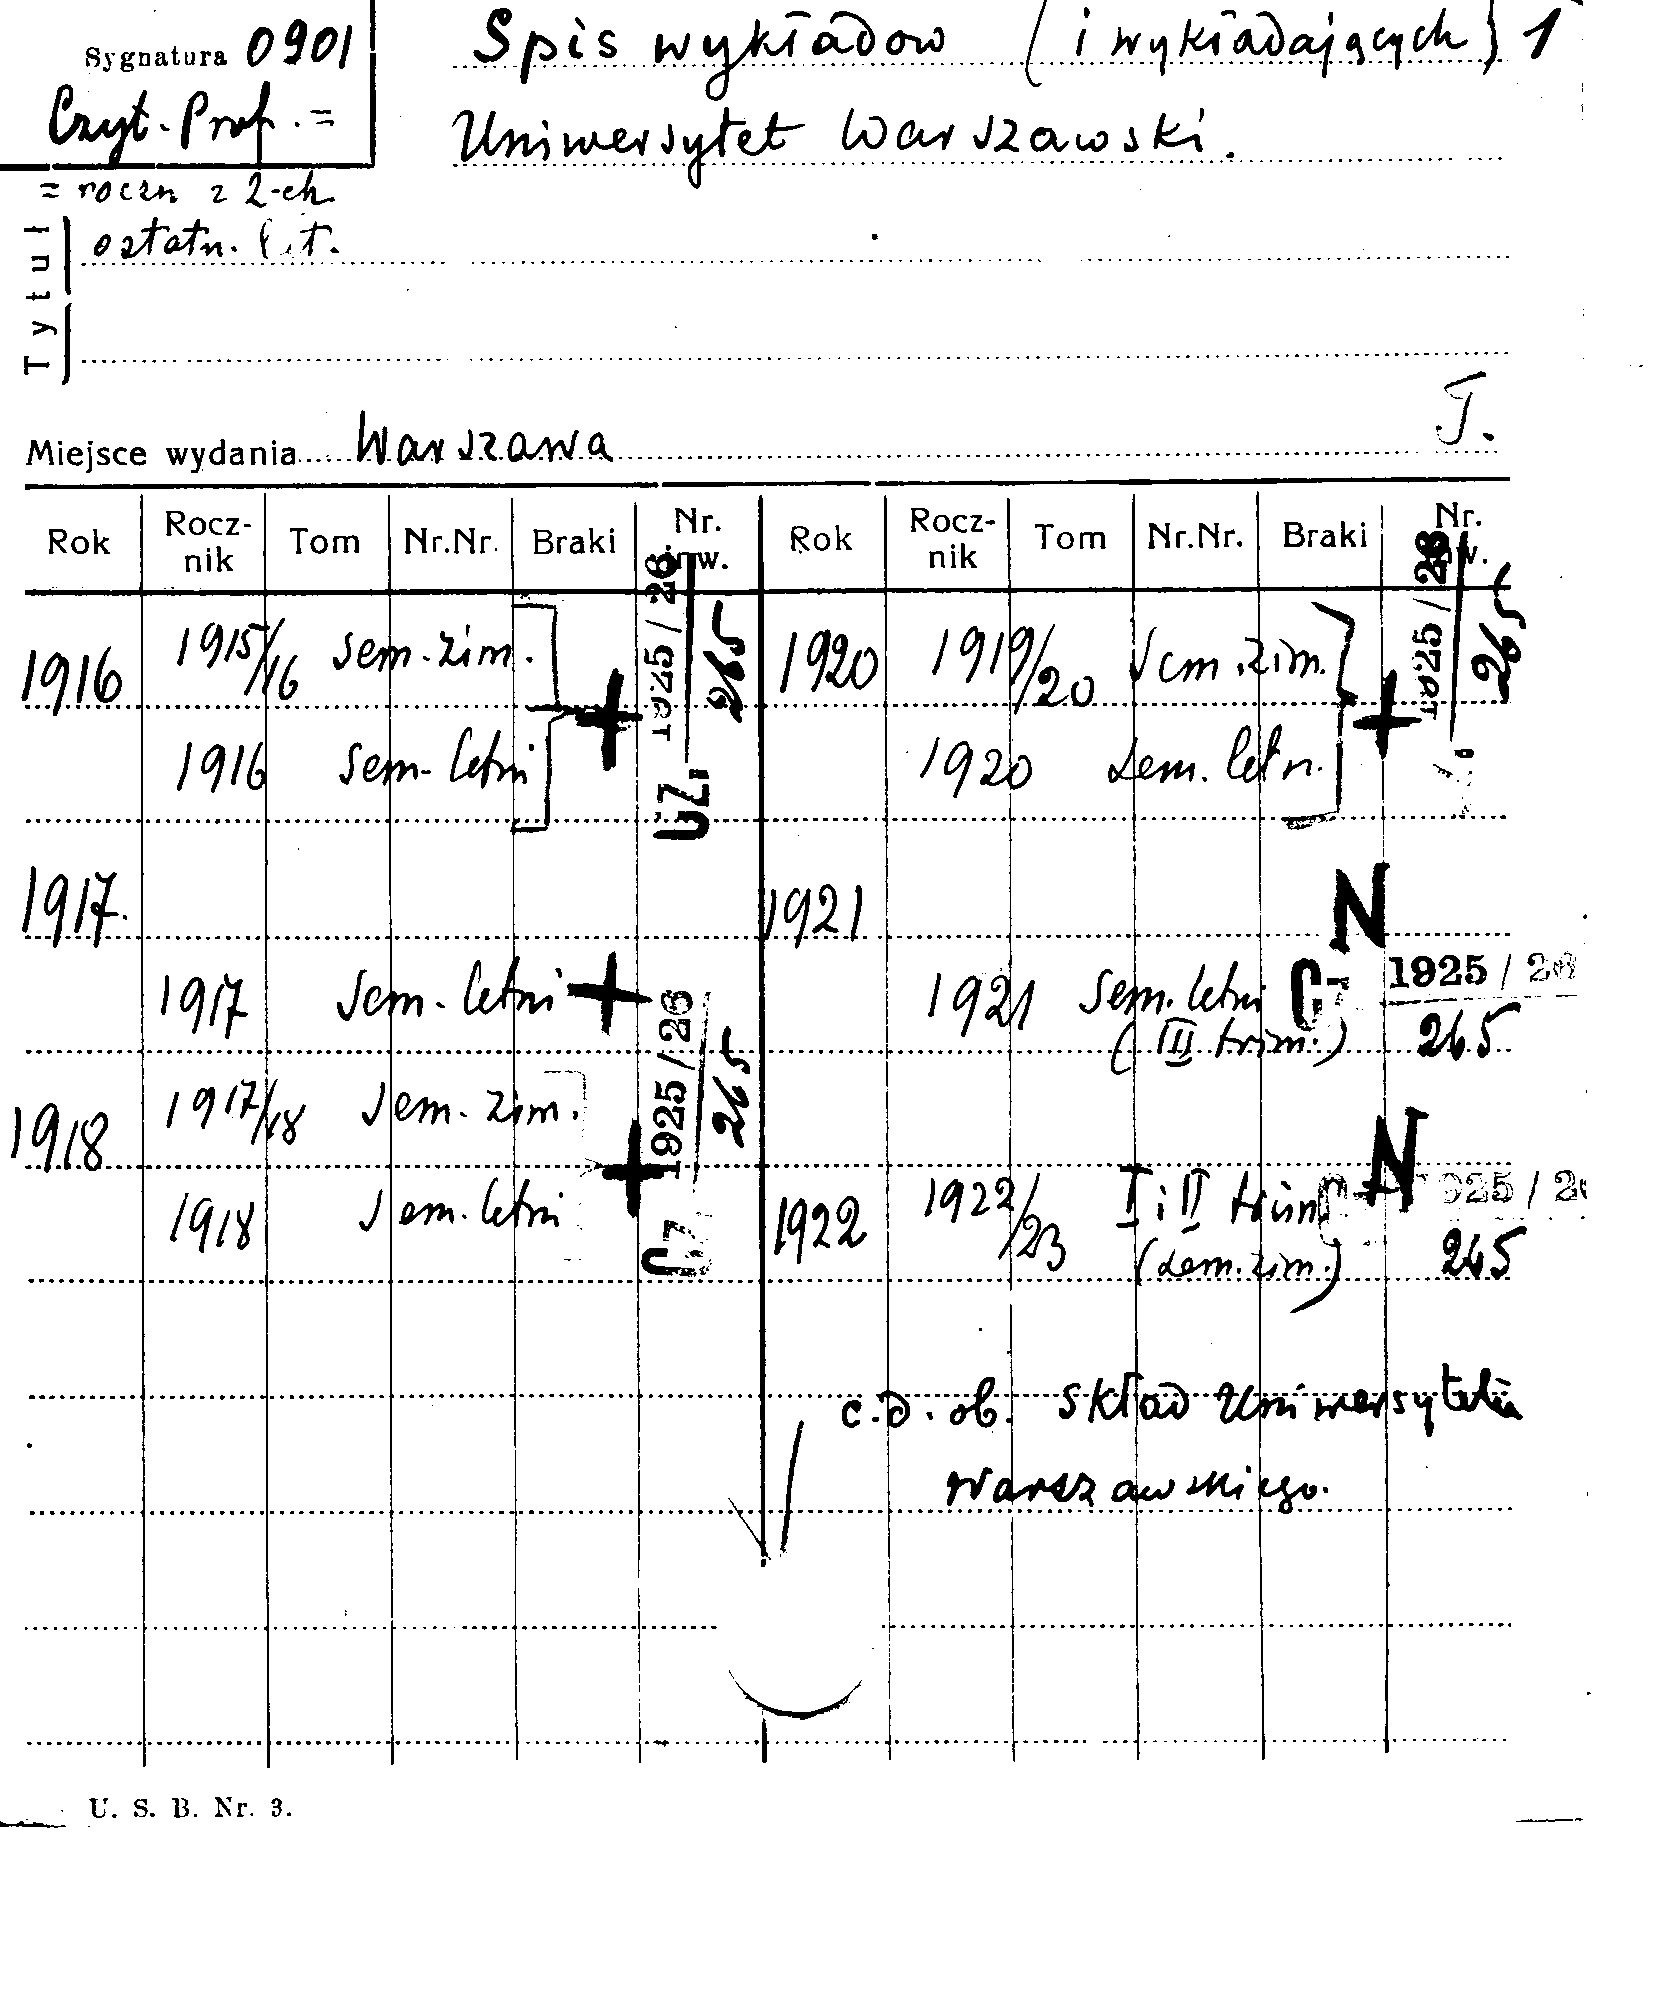 Sygnatura 0901
Czyt. Prof. =
= roczn z 2-ch
ostatn. l t.
Spis wykładow (i wykładających) 1
Uniwersytet Warszawski.
Tytuł
T.
Miejsce wydania Warszawa
Rok Rocz-nik Tom Nr.Nr. Braki Nr. inw. Rok Rocz-nik Tom Nr.Nr. Braki Nr. inw.
1916 1915/16 sem. zim. + 1925/26 265 1920 1919/20 sem. zim. + 1925/26 265
1916 sem. letni Cz. 1920 sem. letn.
1917. 1921 N
1917 sem. letni + 1921 sem. letni 1925/26
(III trim.) 265
1918 1917/18 sem. zim. + 1925/26 265 N
1918 sem. letni 1922 1922/23 I i II trim 1925/26
(sem. zim.) 265
c.d. ob. Skład Uniwersytetu
Warszawskiego.
U. S. B. Nr. 3.